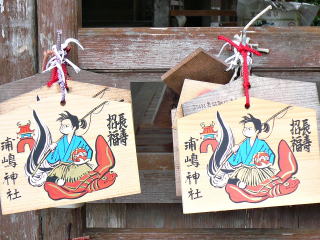 長寿
招福
浦嶋神社
長寿
招福
浦嶋神社